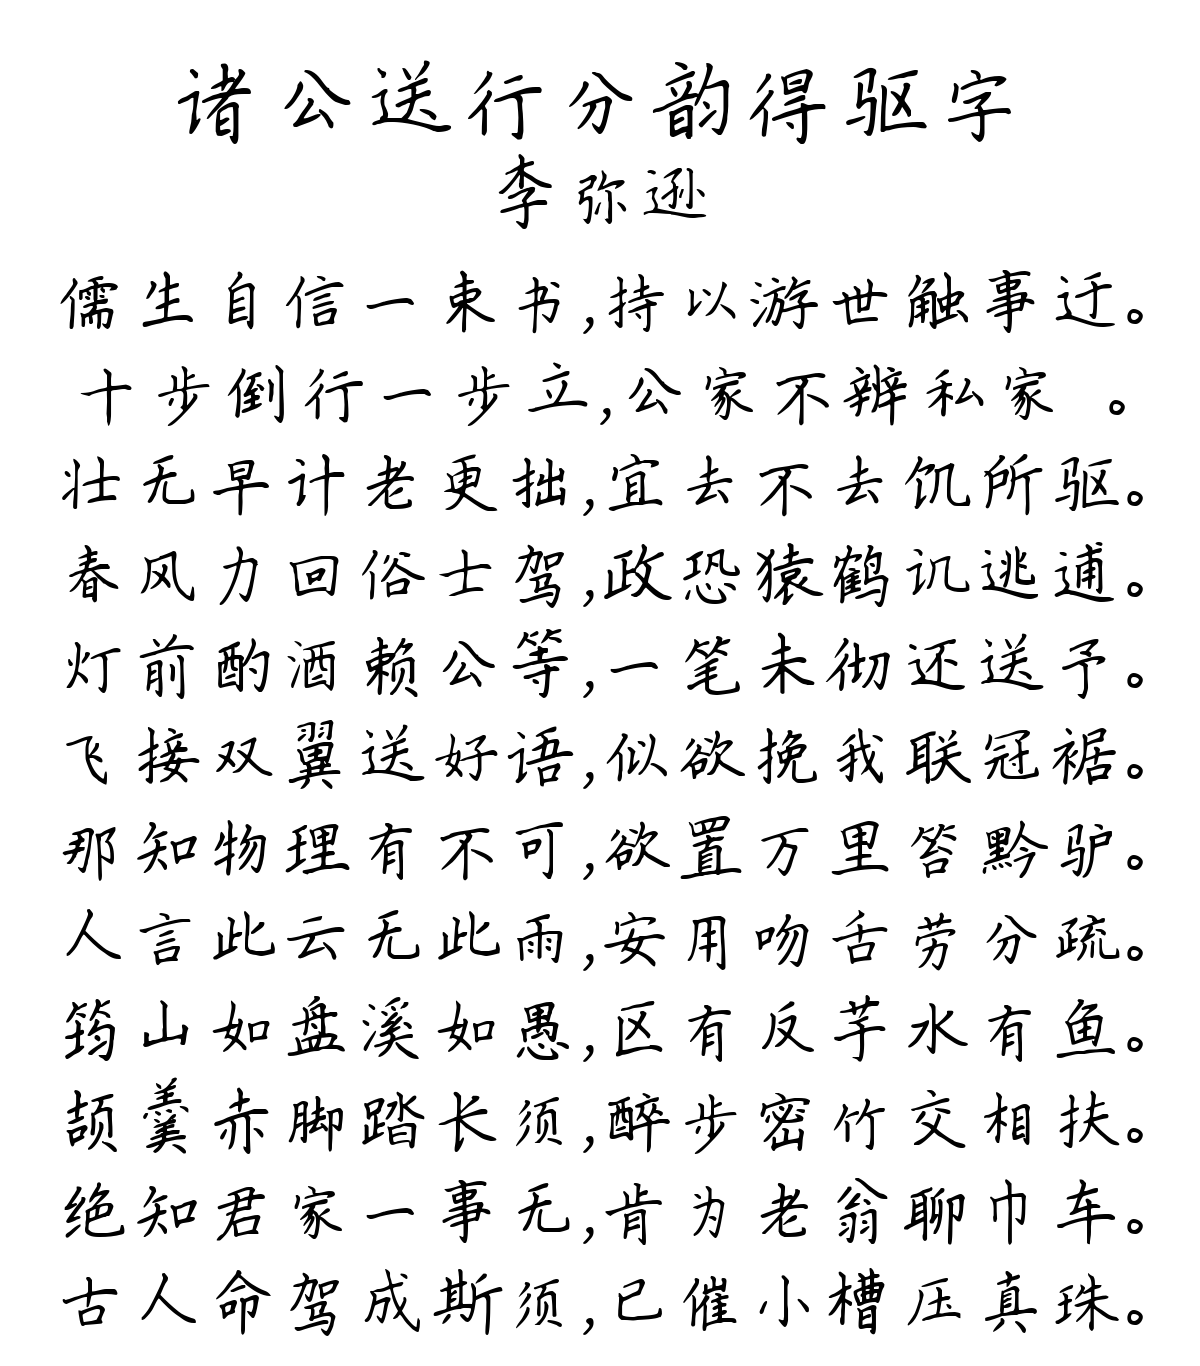 诸公送行分韵得驱字
李弥逊
儒生自信一束书,持以游世触事迂。
十步倒行一步立,公家不辨私家 。
壮无早计老更拙,宜去不去饥所驱。
春风力回俗士驾,政恐猿鹤讥逃逋。
灯前酌酒赖公等,一笔未彻还送予。
飞接双翼送好语,似欲挽我联冠裾。
那知物理有不可,欲置万里答黔驴。
人言此云无此雨,安用吻舌劳分疏。
筠山如盘溪如愚,区有反芋水有鱼。
颉羹赤脚踏长须,醉步密竹交相扶。
绝知君家一事无,肯为老翁聊巾车。
古人命驾成斯须,已催小槽压真珠。